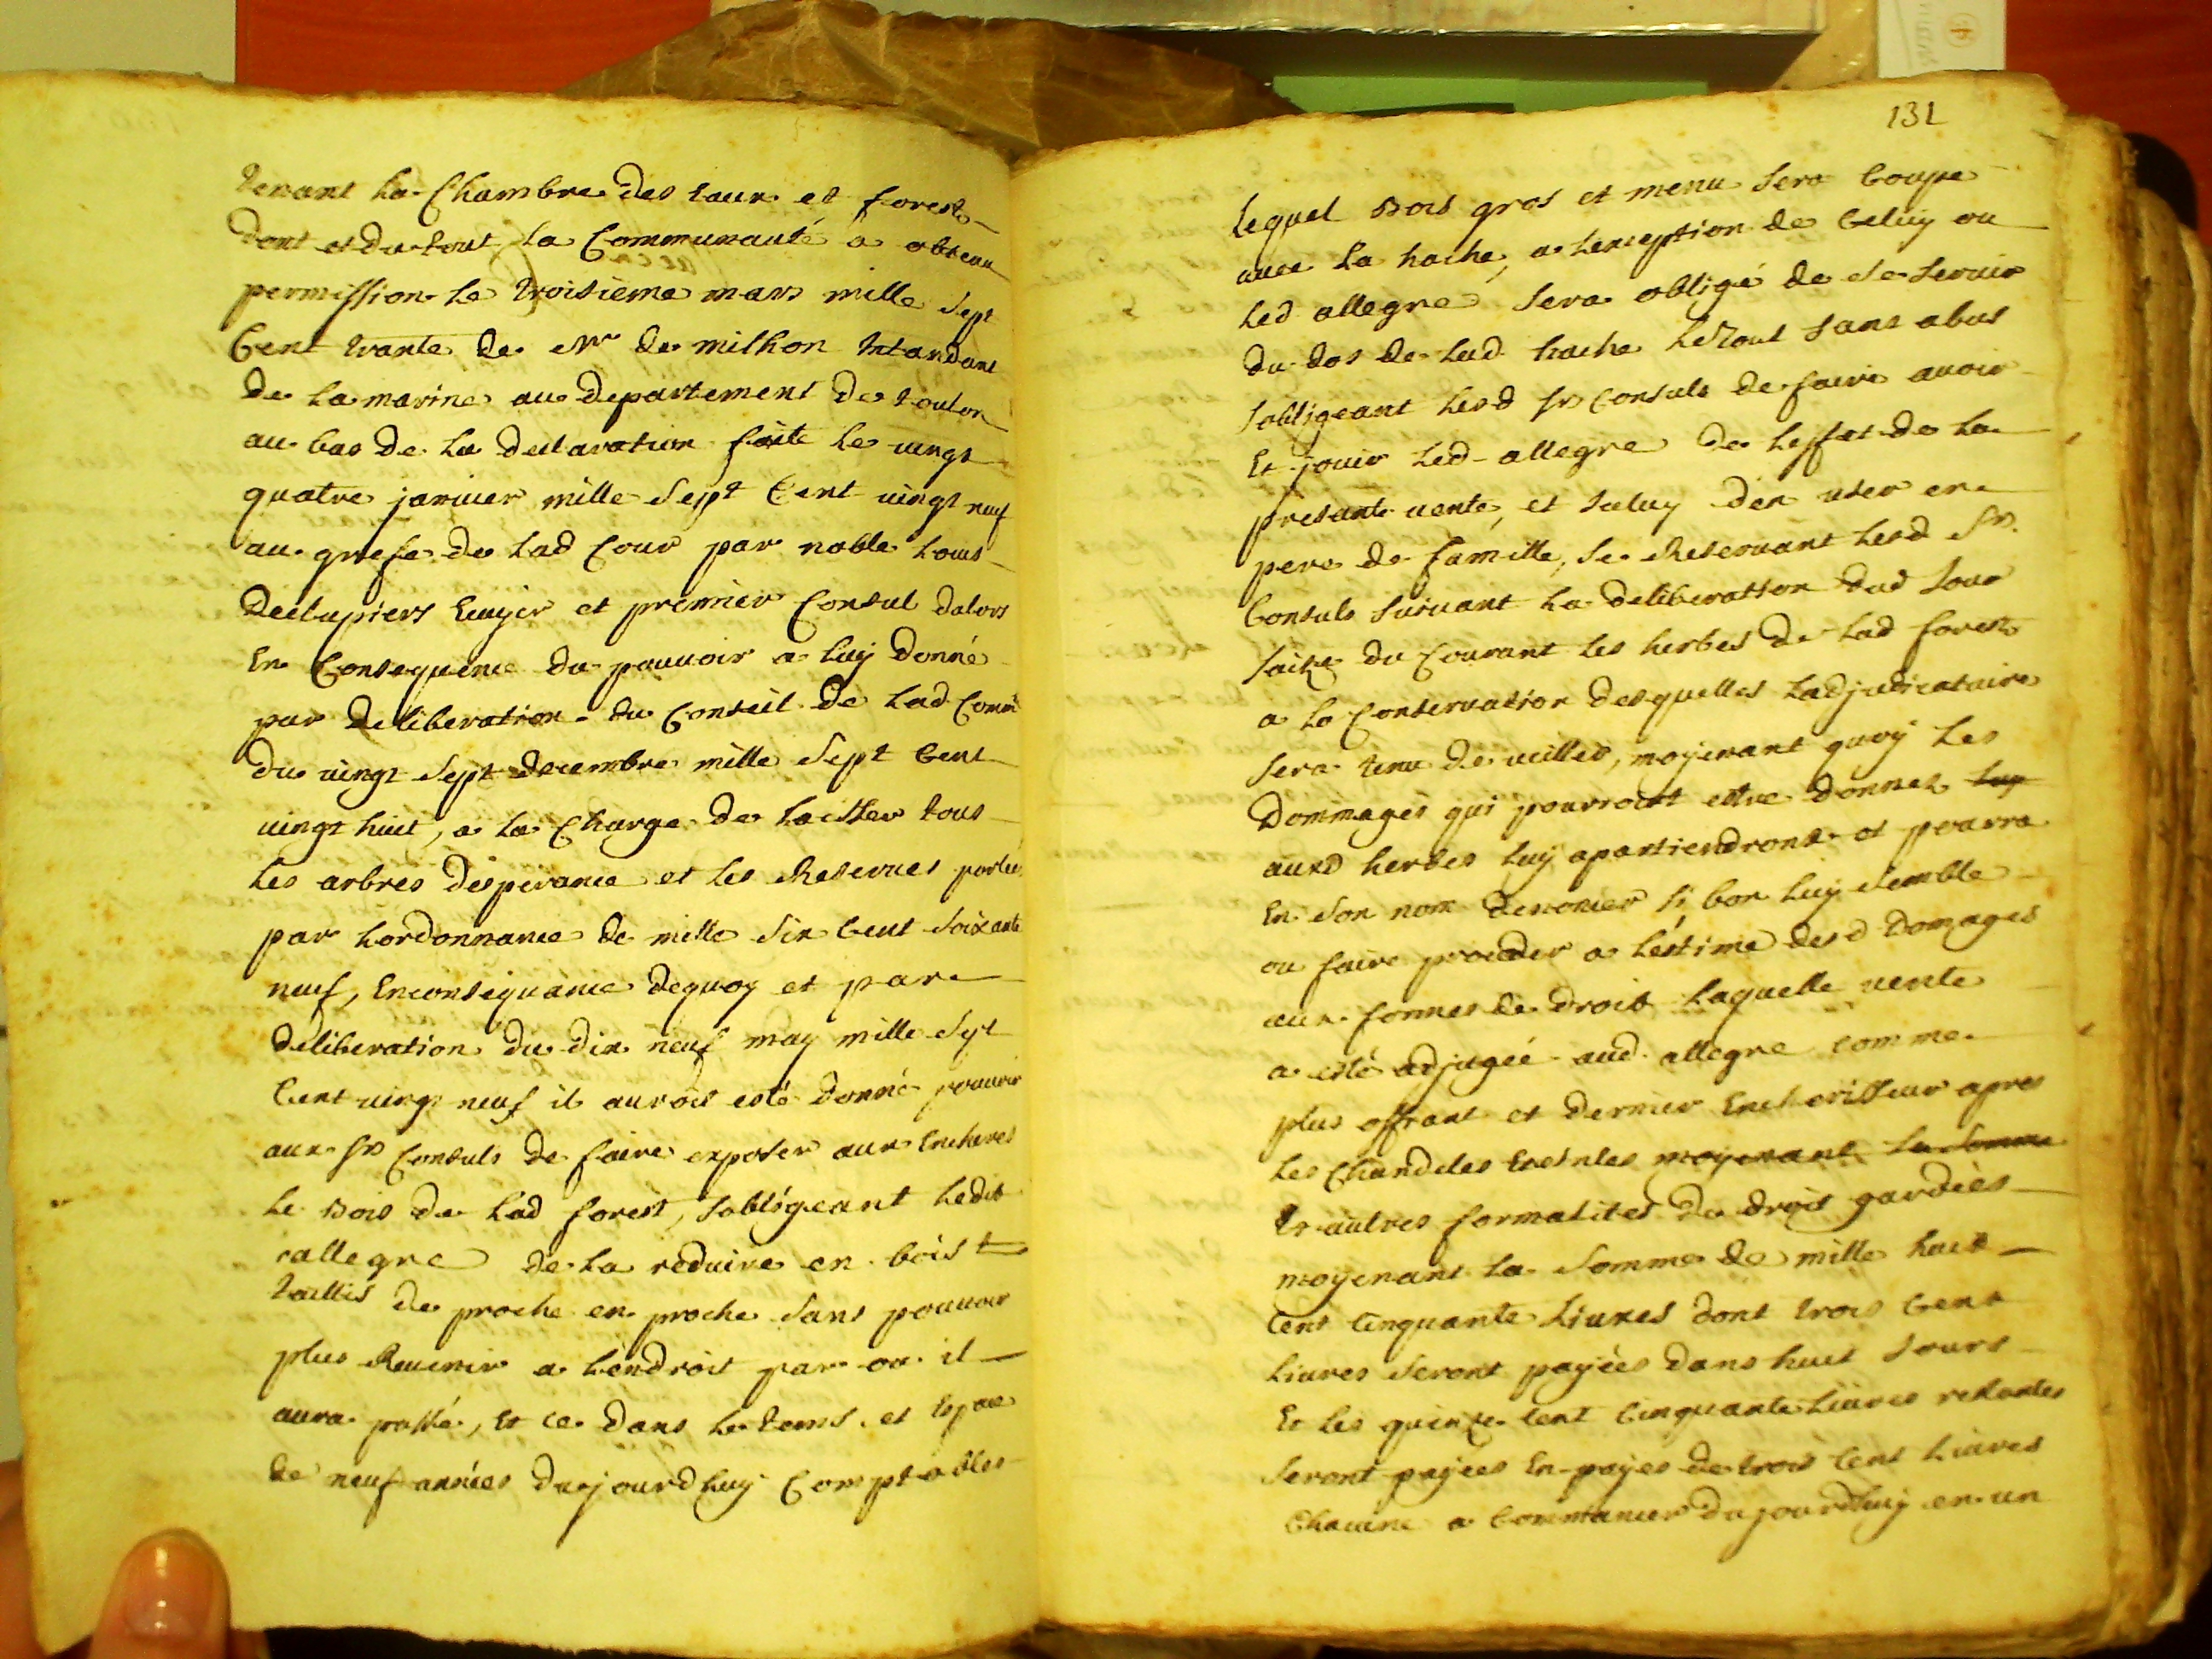 tenant la Chambre des eaux et forest
dont et du tout la Communauté a obtenu
permission le troisième mars mille sept
Cent trante de Mr de milhon Intandant
de la marine au departement de toulon
au bas de la declaration faite le vingt
quatre janvier mille sept Cent vingt neuf
au grefe de lad Cour par noble Louis
Declapiers Ecuyer et premier Consul dalors
En Consequence du pouvoir a luy donné
par deliberation du Conseil de lad Commté
du vingt sept decembre mille sept Cent
vingt huit, a la Charge de laisser tous
les arbres desperance et les Reserves portées
par lordonnance de mille six Cent soixante
neuf, Enconsequance dequoy et par
deliberation du dix neuf may mille sept
Cent vingt neuf il auroit esté donné pouvoir
aux srs Consuls de faire exposer aux Encheres
le Bois de lad forest, sobligeant ledit
allegre de la reduire en bois t
taillis de proche en proche sans pouvoir
plus Revenir a lendroit par ou il
aura passé, Et ce dans le tems et Espace
de neuf années dujourdhuy Comptables
131
lequel Bois gros et menu sera Coupé
avec la hache, a lexception de Celuy ou
led allegre sera obligé de se servir
du dos de lad hache le tout sans abus
sobligeant lesd srs Consuls de faire avoir
Et jouir led allegre de leffet de la
presante vente, et a luy den user en
pere de famille, se Reservant lesd Srs
Consuls suivant la deliberation dud jour
saize du Courant les herbes de lad forest
a la Conservation desquelles ladjudicataire
sera tenu de veiller, moyenant quoy les
Dommages qui pourroint estre donnez luy
auxd herbes luy apartiendront et pourra
En son nom denoncer si bon luy semble
ou faire proceder a lestime desd Domages
aux formes de droit laquelle vente
a esté adjugée aud allegre comme
plus offrant et dernier Encherisseur apres
les Chandeles Eteintes moyenant la somme
Et autres formalites de droit gardées
moyenant la somme de mille huit
Cent Cinquante Livres dont trois Cent
livres seront payées dans huit Jours
Et les quinze Cent Cinquante livres restantes
seront payées En payes de trois Cent Livres
Chacune a Commancer dujourdhuy en un